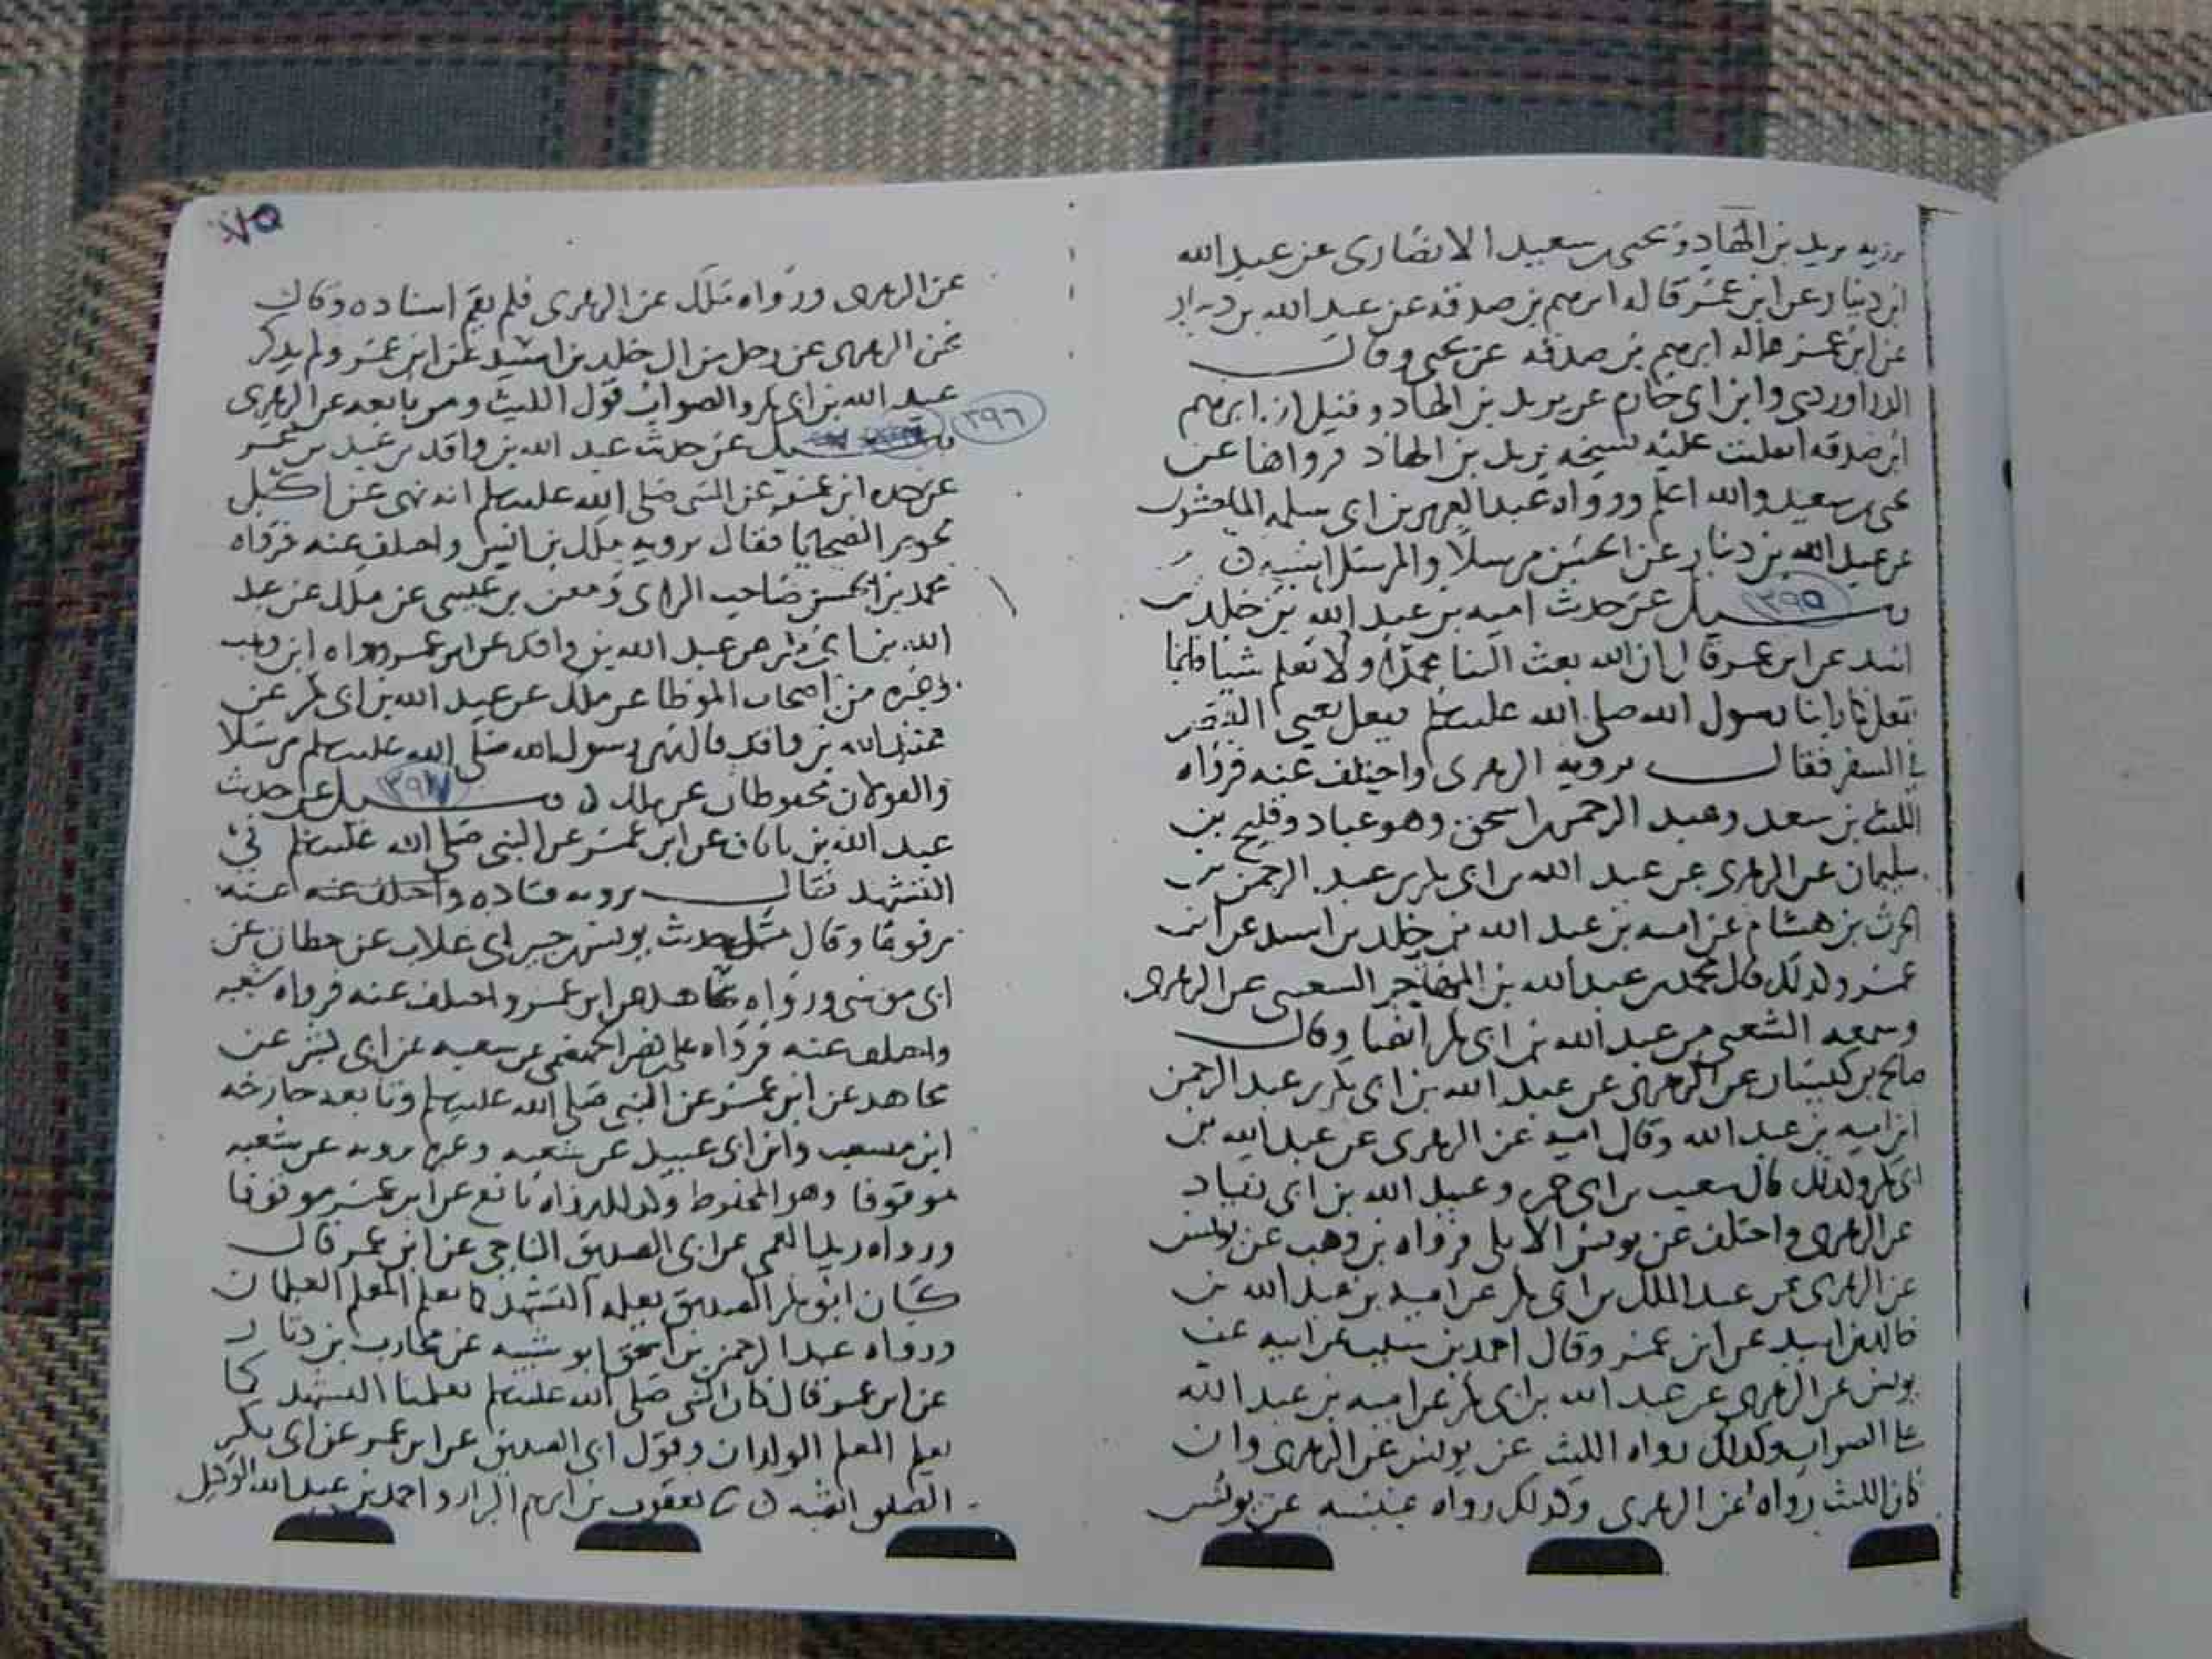 يرويه يزيد بن الهاد ويحيى بن سعيد الانصارى عن عبد الله
ابن دينار عن ابن عمر قاله ابرهيم بن صدقه عن عبد الله بن دينار
عن ابن عمر قاله ابرهيم بن صدقه عن يحيى وقال
الدراوردى وابن ابى حازم عن يزيد بن الهاد وقيل ان ابرهيم
ابن صدقه عليه نسخه يزيد بن الهاد فرواها عن
يحيى بن سعيد والله اعلم ورواه عبد العزيز بن ابى سلمه الماجشون
عن عبد الله بن دينار عن مرسلا والمرسل اشبه ن
وسيل ١٣٩٥ عن حديث اميه بن عبد الله بن خلد بن
اسيد عن ابن عمر قال ان الله بعث الينا محمدا ولا نعلم شيا فانما
نفعل كما راينا رسول الله صلى الله عليه وسلم يفعل يعنى القصر
فى السفر فقال يرويه الزهرى واختلف عنه فرواه
الليث بن سعد وعبد الرحمن بن اسحق وهو عباد وفليح بن
سليمان عن الزهرى عن عبد الله بن ابى بكر بن عبد الرحمن بن
الحرث بن هشام عن اميه بن عبد الله بن خلد بن اسيد عن ابن
عمر وكذلك قال محمد بن عبد الله بن المهاجر الشعيثى عن الزهرى
وسمعه الشعيثى من عبد الله بن ابى بكر ايضا وقال
صالح بن كيسان عن الزهرى عن عبد الله بن ابى بكر بن عبد الرحمن
ابن اميه بن عبد الله وقال عن الزهرى عن عبد الله بن
ابى بكر وكذلك قال شعيب بن ابى حمزه وعبيد الله بن ابى زياد
عن الزهرى واختلف عن يونس الايلى فرواه بن وهب عن يونس
عن الزهرى عن عبد الملك بن ابى بكر عن اميه بن عبد الله بن
خالد بن اسيد عن ابن عمر وقال احمد بن شبيب عن ابيه عن
يونس عن الزهرى عن عبد الله بن ابى بكر عن اميه بن عبد الله
على الصواب وكذلك رواه الليث عن يونس عن الزهرى وان
كان الليث رواه عن الزهرى وكذلك رواه عنبسه عن يونس
٧٥
عن الزهرى ورواه ملك عن الزهرى فلم يقم اسناده وقال
عن الزهرى عن رجل من ال خلد بن اسيد عن ابن عمر ولم يذكر
عبد الله بن ابى بكر والصواب قول الليث ومن تابعه عن الزهرى
١٣٩٦ وسيل عن حديث عبد الله بن واقد بن عبد بن عمر
عن جده ابن عمر عن النبى صلى الله عليه وسلم انه نهى عن اكل
لحوم الضحايا فقال يرويه ملك بن انس واختلف عنه فرواه
محمد بن الحسن صاحب الراى ومعن بن عيسى عن ملك عن عبد
الله بن ابى بكر عن عبد الله بن واقد عن ابن عمر ورواه ابن وهب
وغيره من اصحاب الموطا عن ملك عن عبد الله بن ابى بكر عن
عبد الله بن واقد قال نهى رسول الله صلى الله عليه وسلم مرسلا
والقولان محفوظان عن ملك ن وسيل ١٣٩٧ عن حديث
عبد الله بن عن ابن عمر عن النبى صلى الله عليه وسلم فى
التشهد فقال يرويه قتاده واختلف عنه عنه
وقال مثل حديث يونس بن جبير ابى غلاب عن حطان عن
ابى موسى ورواه مجاهد عن ابن عمر واختلف عنه فرواه شعبه
واختلف عنه فرواه على بن نصر الجهضمى عن شعبه عن ابى بشر عن
مجاهد عن ابن عمر عن النبى صلى الله عليه وسلم وتابعه خارجه
ابن مصعب وابن ابى عن شعبه وغيرهما يرويه عن شعبه
موقوفا وهو المحفوظ وكذلك رواه نافع عن ابن عمر موقوفا
ورواه زيد العمى عن ابى الصديق الناجى عن ابن عمر قال
كان ابو بكر الصديق يعلمه التشهد كما يعلم المعلم الغلمان
ورواه عبد الرحمن بن اسحق ابو شيبه عن محارب بن دثار
عن ابن عمر قال كان النبى صلى الله عليه وسلم يعلمنا التشهد كما
يعلم المعلم الولدان وقول ابى الصديق عن ابن عمر عن ابى بكر
اشبه ن ثنا يعقوب بن ابرهيم البزاز واحمد بن عبد الله الوكيل